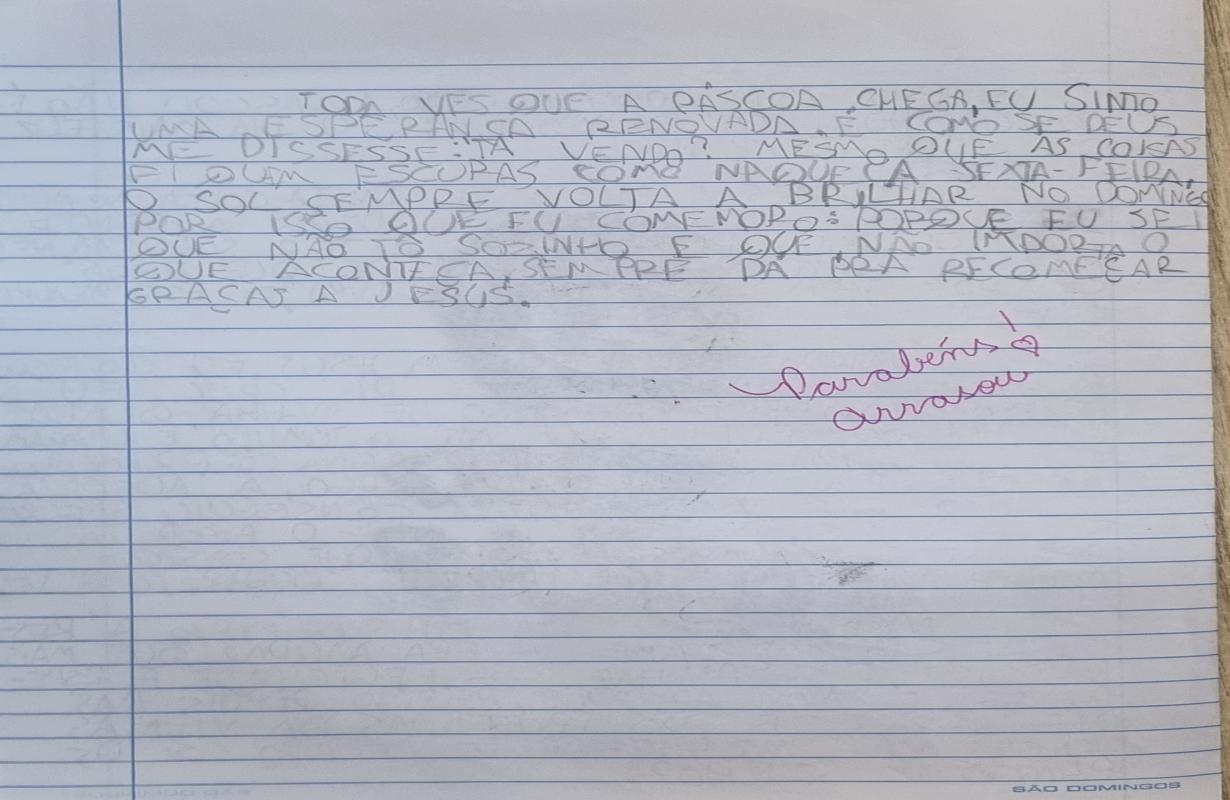 TODA VES QUE A PÁSCOA CHEGA, EU SINTO
UMA ESPERANSA RENOVADA. É COMO SE DEUS
ME DISSESSE: TÁ VENDO? MESMO QUE AS COISAS
FIQUEM ESCURAS COMO NAQUELA SEXTA-FEIRA,
O SOL SEMPRE VOLTA A BRILHAR NO DOMINGO
POR ISSO QUE EU COMEMORO: PORQUE EU SEI
QUE NÃO TÔ SOZINHO E QUE NÃO IMPORTA O
QUE ACONTEÇA, SEMPRE DÁ PRA RECOMEÇAR
GRAÇAS A JESUS.
Parabéns!
arrasou
SÃO DOMINGOS